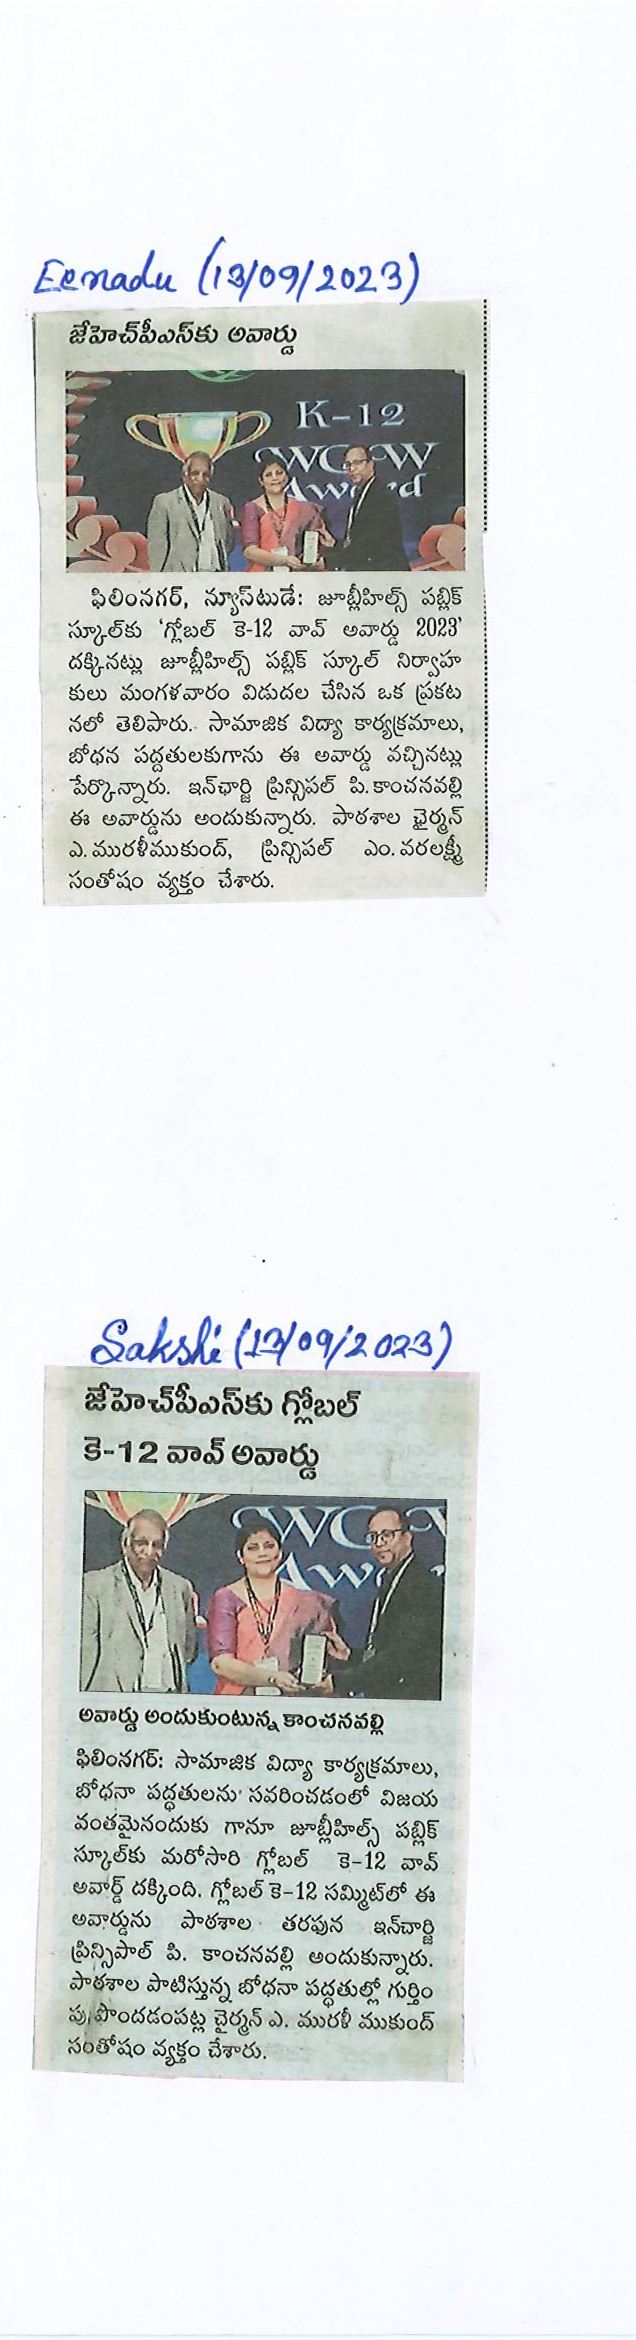 Eenadu (13/09/2023)
జేహెచ్‌పీఎస్‌కు అవార్డు
K-12
WOW
Award
ఫిలింనగర్, న్యూస్‌టుడే: జూబ్లీహిల్స్ పబ్లిక్
స్కూల్‌కు 'గ్లోబల్ కె-12 వావ్ అవార్డు 2023'
దక్కినట్లు జూబ్లీహిల్స్ పబ్లిక్ స్కూల్ నిర్వాహ
కులు మంగళవారం విడుదల చేసిన ఒక ప్రకట
నలో తెలిపారు. సామాజిక విద్యా కార్యక్రమాలు,
బోధన పద్ధతులకుగాను ఈ అవార్డు వచ్చినట్లు
పేర్కొన్నారు. ఇన్‌ఛార్జి ప్రిన్సిపల్ పి.కాంచనవల్లి
ఈ అవార్డును అందుకున్నారు. పాఠశాల ఛైర్మన్
ఎ.మురళీముకుంద్, ప్రిన్సిపల్ ఎం.వరలక్ష్మీ
సంతోషం వ్యక్తం చేశారు.
Sakshi (13/09/2023)
జేహెచ్‌పీఎస్‌కు గ్లోబల్
కె-12 వావ్ అవార్డు
అవార్డు అందుకుంటున్న కాంచనవల్లి
ఫిలింనగర్: సామాజిక విద్యా కార్యక్రమాలు,
బోధనా పద్ధతులను సవరించడంలో విజయ
వంతమైనందుకు గానూ జూబ్లీహిల్స్ పబ్లిక్
స్కూల్‌కు మరోసారి గ్లోబల్ కె-12 వావ్
అవార్డ్ దక్కింది. గ్లోబల్ కె-12 సమ్మిట్‌లో ఈ
అవార్డును పాఠశాల తరపున ఇన్‌చార్జి
ప్రిన్సిపాల్ పి. కాంచనవల్లి అందుకున్నారు.
పాఠశాల పాటిస్తున్న బోధనా పద్ధతుల్లో గుర్తిం
పు పొందడంపట్ల చైర్మన్ ఎ. మురళీ ముకుంద్
సంతోషం వ్యక్తం చేశారు.